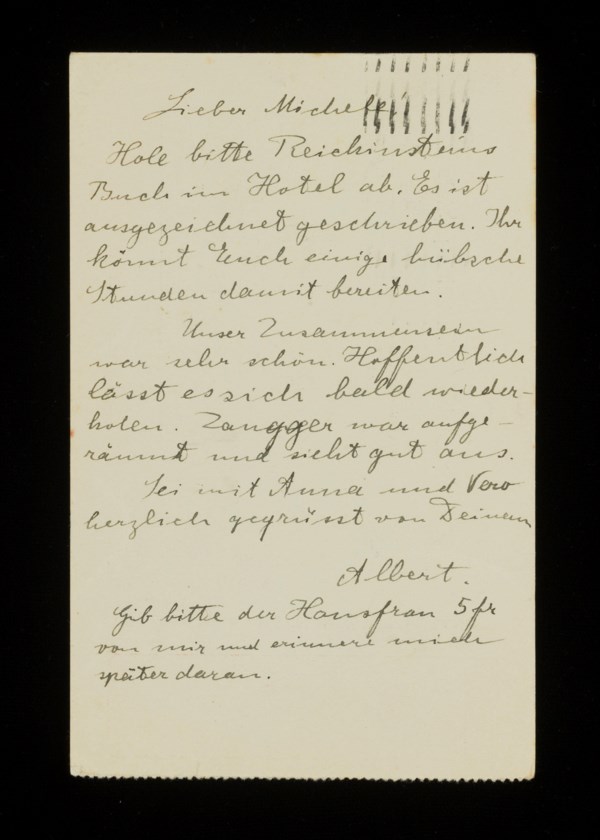 Lieber Michele!
Hole bitte Reichinsteins
Buch im Hotel ab. Es ist
ausgezeichnet geschrieben. Ihr
könnt Euch einige hübsche
Stunden damit bereiten.
Unser Zusammensein
war sehr schön. Hoffentlich
lässt es sich bald wieder-
holen. Zangger war aufge-
räumt und sieht gut aus.
Sei mit Anna und Vero
herzlich gegrüsst von Deinem
Albert.
Gib bitte der Hausfrau 5 fr
von mir und erinnere mich
später daran.